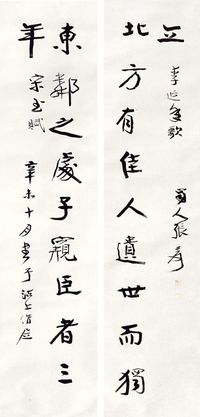 北方有佳人遺世而獨
立
李延年歌
蜀人張爰
東鄰之處子窺臣者三
年
宋玉賦
辛未十月書于